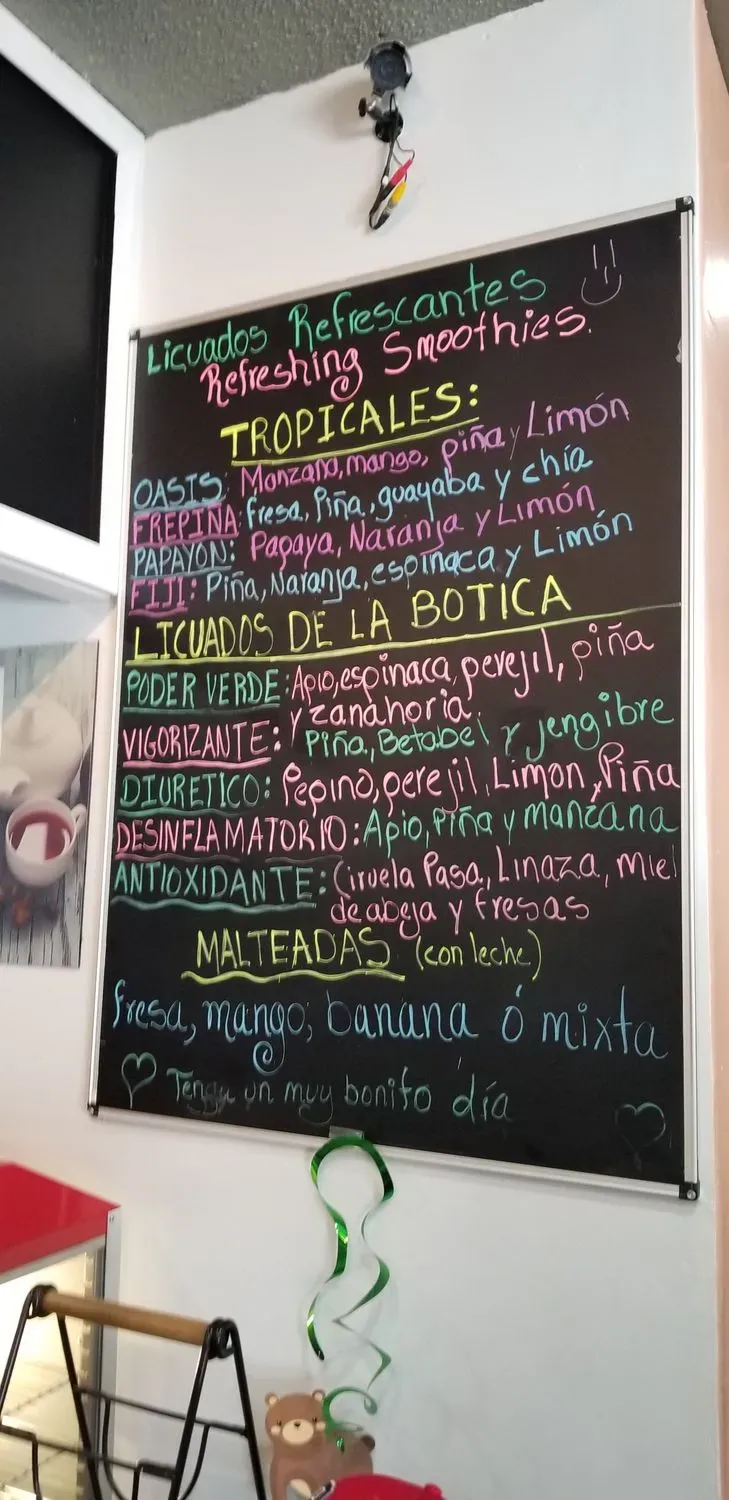 Licuados Refrescantes
Refreshing Smoothies.
TROPICALES:
OASIS: Manzana, mango, piña y Limón
FREPIÑA: fresa, Piña, guayaba y chía
PAPAYON: Papaya, Naranja y Limón
FIJI: Piña, Naranja, espinaca y Limón
LICUADOS DE LA BOTICA
PODER VERDE: Apio, espinaca, perejil, piña
y zanahoria.
VIGORIZANTE: Piña, Betabel y jengibre
DIURETICO: Pepino, perejil, Limon, Piña
DESINFLAMATORIO: Apio, Piña y manzana
ANTIOXIDANTE: Ciruela Pasa, Linaza, miel
de abeja y fresas
MALTEADAS (con leche)
fresa, mango, banana ó mixta
Tenga un muy bonito día